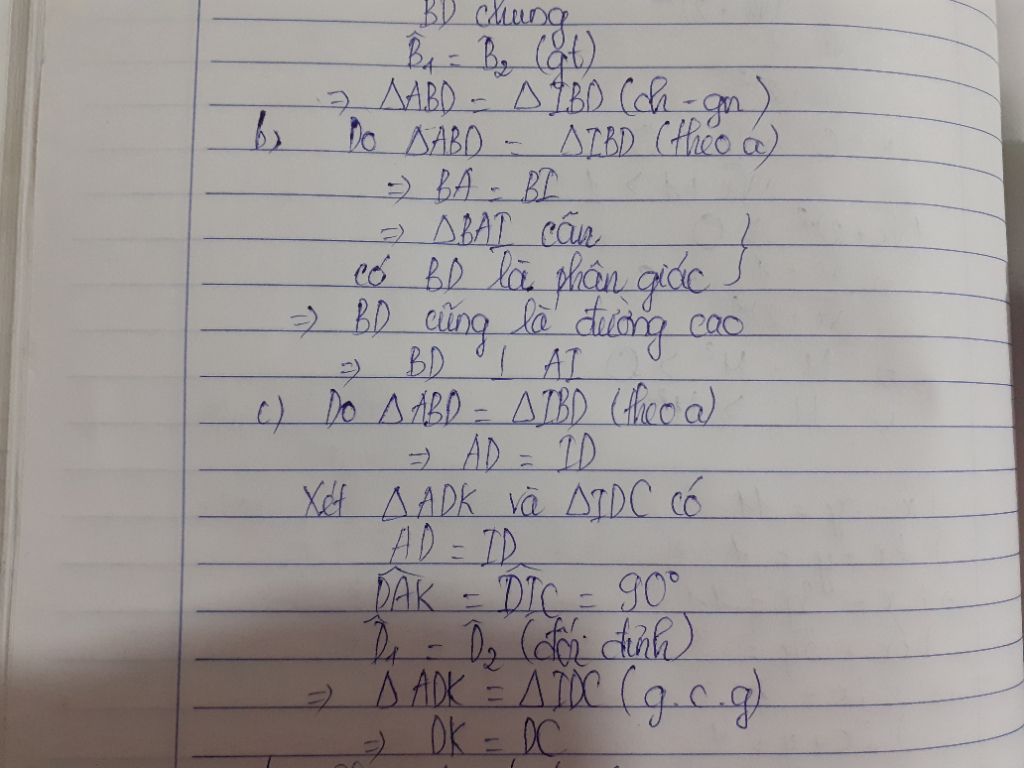 BD chung
B̂₁ = B̂₂ (gt)
⇒ ΔABD = ΔIBD (ch - gn)
b, Do ΔABD = ΔIBD (theo a)
⇒ BA = BI
⇒ ΔBAI cân
có BD là phân giác }
⇒ BD cũng là đường cao
⇒ BD ⊥ AI
c) Do ΔABD = ΔIBD (theo a)
⇒ AD = ID
Xét ΔADK và ΔIDC có
AD = ID
D̂AK = D̂IC = 90°
D̂₁ = D̂₂ (đối đỉnh)
⇒ ΔADK = ΔIDC (g.c.g)
⇒ DK = DC